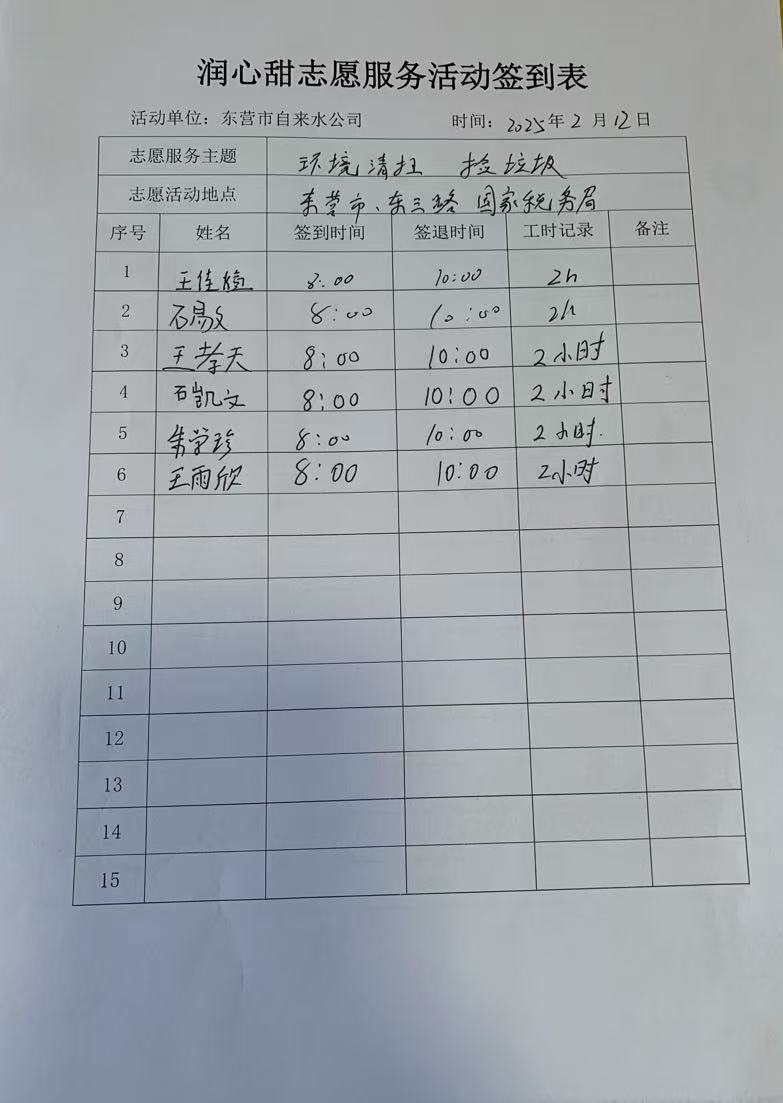 润心甜志愿服务活动签到表
活动单位：东营市自来水公司 时间：2025年2月12日
志愿服务主题 环境清扫 捡垃圾
志愿活动地点 东营市、东三路 国家税务局
序号 姓名 签到时间 签退时间 工时记录 备注
1 王佳 8:00 10:00 2h
2 石 8:00 10:00 2h
3 王孝天 8:00 10:00 2小时
4 石凯文 8:00 10:00 2小时
5 朱学珍 8:00 10:00 2小时.
6 王雨欣 8:00 10:00 2小时
7
8
9
10
11
12
13
14
15